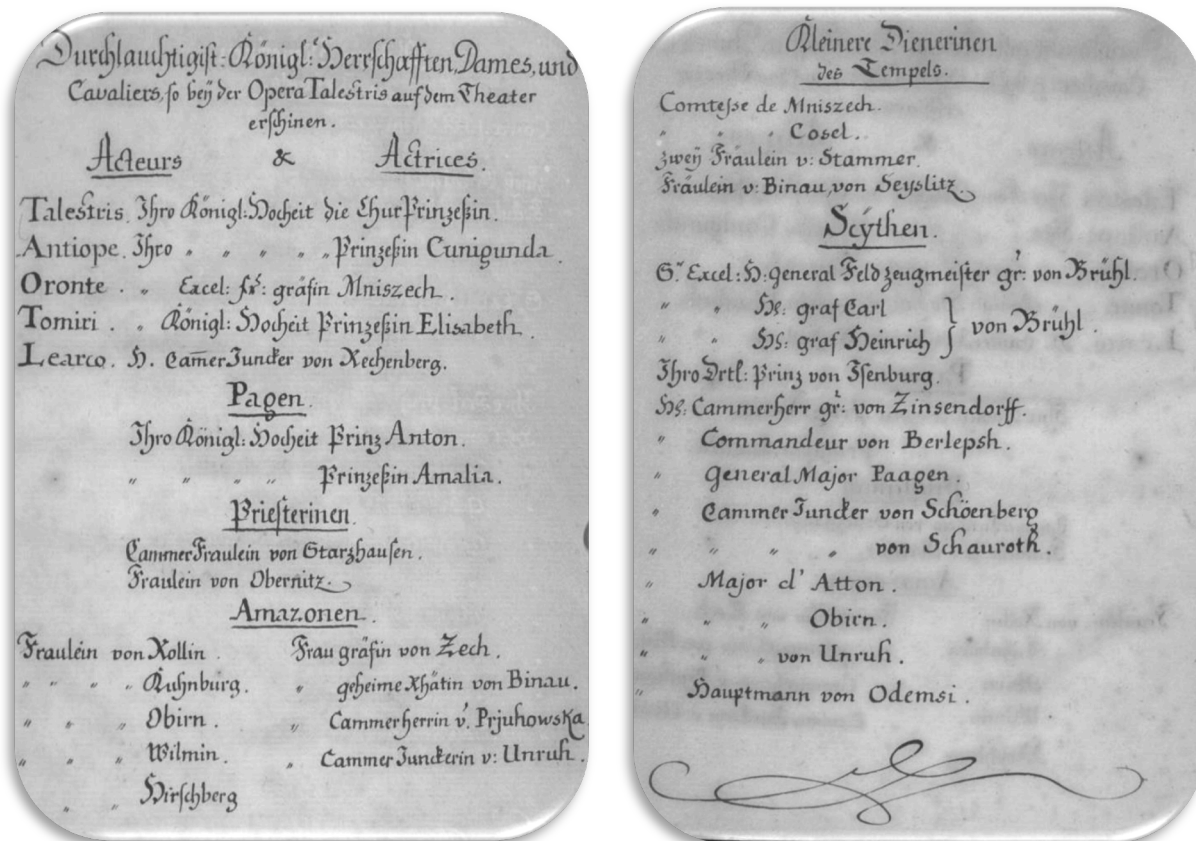 Durchlauchtigist: Königl: Herrschafften, Dames, und
Cavaliers, so beÿ der Opera Talestris auf dem Theater
erschinen.
Acteurs & Actrices.
Talestris. Ihro Königl: Hocheit die ChurPrinzeßin.
Antiope. Ihro " " " " Prinzeßin Cunigunda.
Oronte. " Excel: fr: gräfin Mniszech.
Tomiri. " Königl: Hocheit Prinzeßin Elisabeth.
Learco. H. Cam̄er Juncker von Rechenberg.
Pagen.
Ihro Königl: Hocheit Prinz Anton.
" " " " Prinzeßin Amalia.
Priesterinen.
Cammer Fraulein von Starzhausen.
Fraulein von Obernitz.
Amazonen.
Fraulein von Kollin. Frau gräfin von Zech.
" " " " Kuhnburg. " geheime Rhätin von Binau.
" " " Obirn. " Cammerherrin v. Prjuhowska
" " " Wilmin. " Cammer Junckerin v: Unruh.
" " Hirschberg
Kleinere Dienerinen
des Tempels.
Comtesse de Mniszech.
" " " Cosel.
zweÿ Fräulein v: Stammer.
Fräulein v: Binau, von Seyslitz.
Scÿthen.
Sr Excel: H: general Feldzeugmeister gr: von Brühl.
" " Hl: graf Carl } von Brühl.
" " Hl: graf Heinrich
Ihro Drtl: Prinz von Isenburg.
Hl: Cammerherr gr: von Zinsendorff.
" Commandeur von Berlepsh.
" General Major Paagen.
" Cammer Juncker von Schöenberg
" " " " von Schauroth.
" Major d' Atton.
" " " Obirn.
" " " von Unruh.
" Hauptmann von Odemsi.